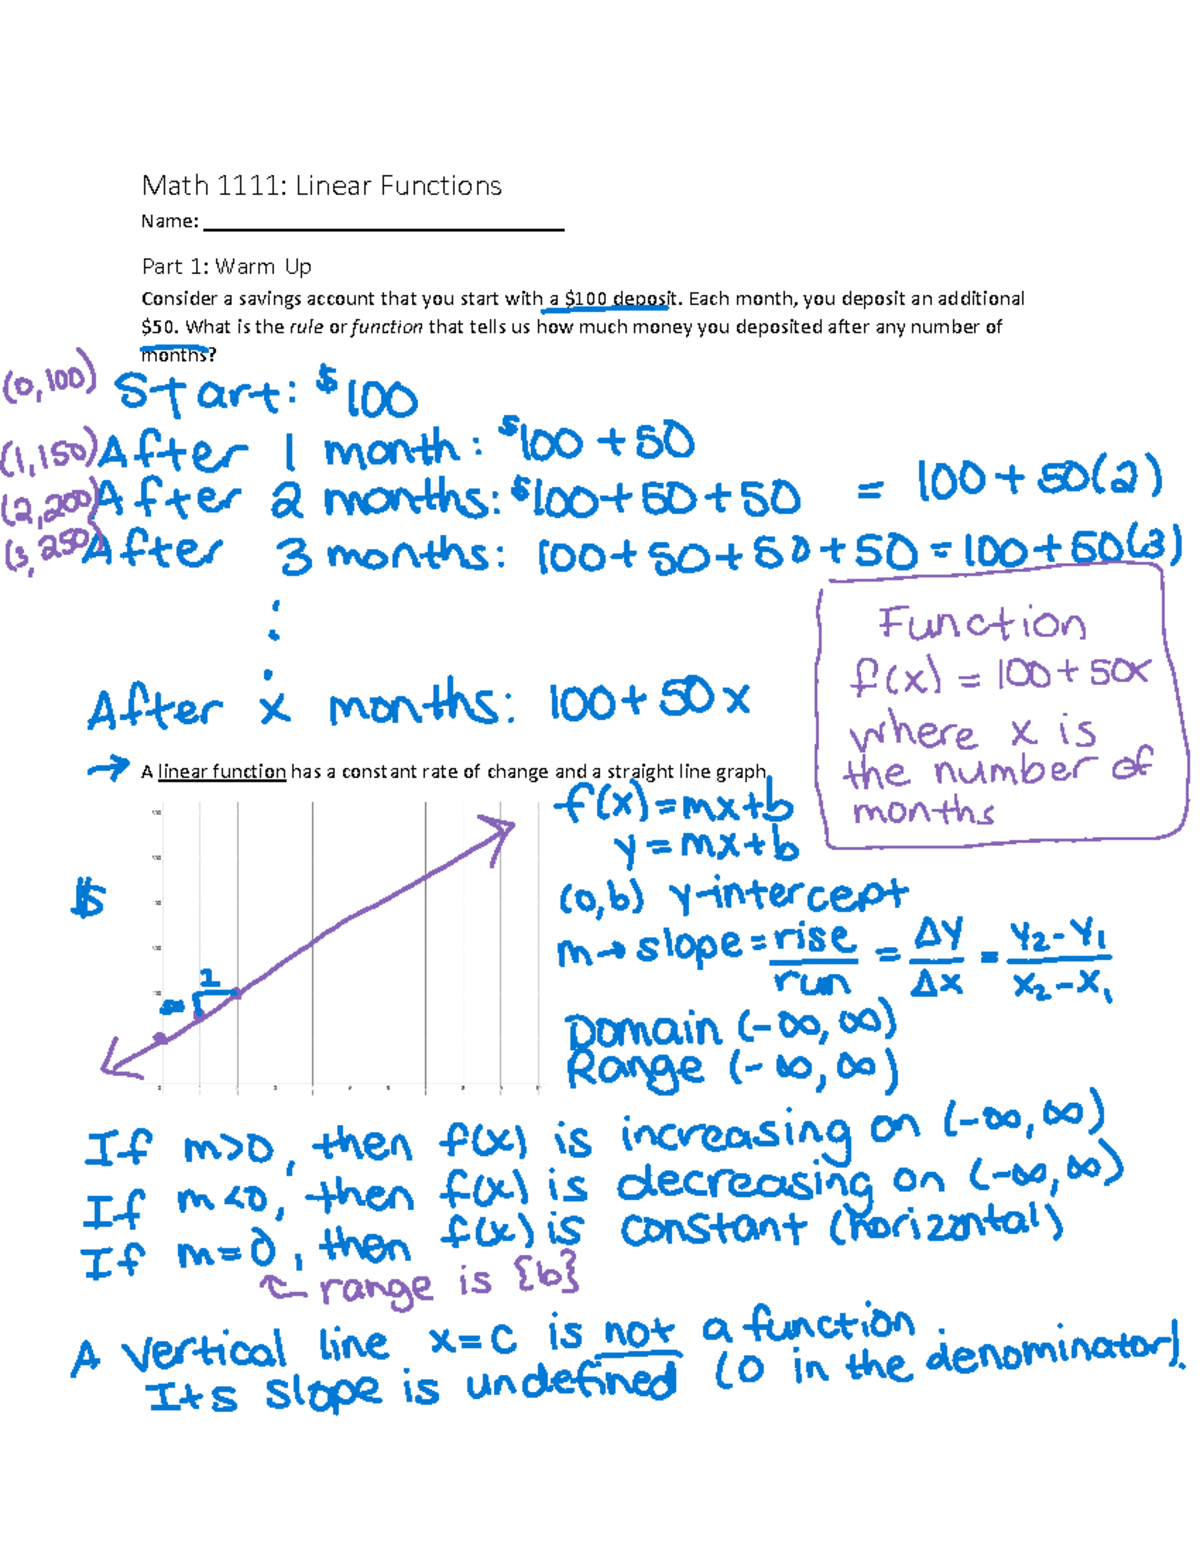 Math 1111: Linear Functions
Name:
Part 1: Warm Up
Consider a savings account that you start with a $100 deposit. Each month, you deposit an additional
$50. What is the rule or function that tells us how much money you deposited after any number of
months?
(0,100) Start: $100
(1,150) After 1 month: $100 + 50
(2,200) After 2 months: $100+50+50 = 100+50(2)
(3,250) After 3 months: 100+50+50+50 = 100+50(3)
⋮
After x months: 100+50x
Function
f(x) = 100+50x
where x is
the number of
months
→ A linear function has a constant rate of change and a straight line graph
f(x)=mx+b
y=mx+b
$
(0,b) y-intercept
m→slope = rise/run = Δy/Δx = y₂-y₁/x₂-x₁
1
Domain (-∞,∞)
Range (-∞,∞)
If m>0, then f(x) is increasing on (-∞,∞)
If m<0, then f(x) is decreasing on (-∞,∞)
If m=0, then f(x) is constant (horizontal)
range is {b}
A vertical line x=c is not a function.
Its slope is undefined (0 in the denominator).